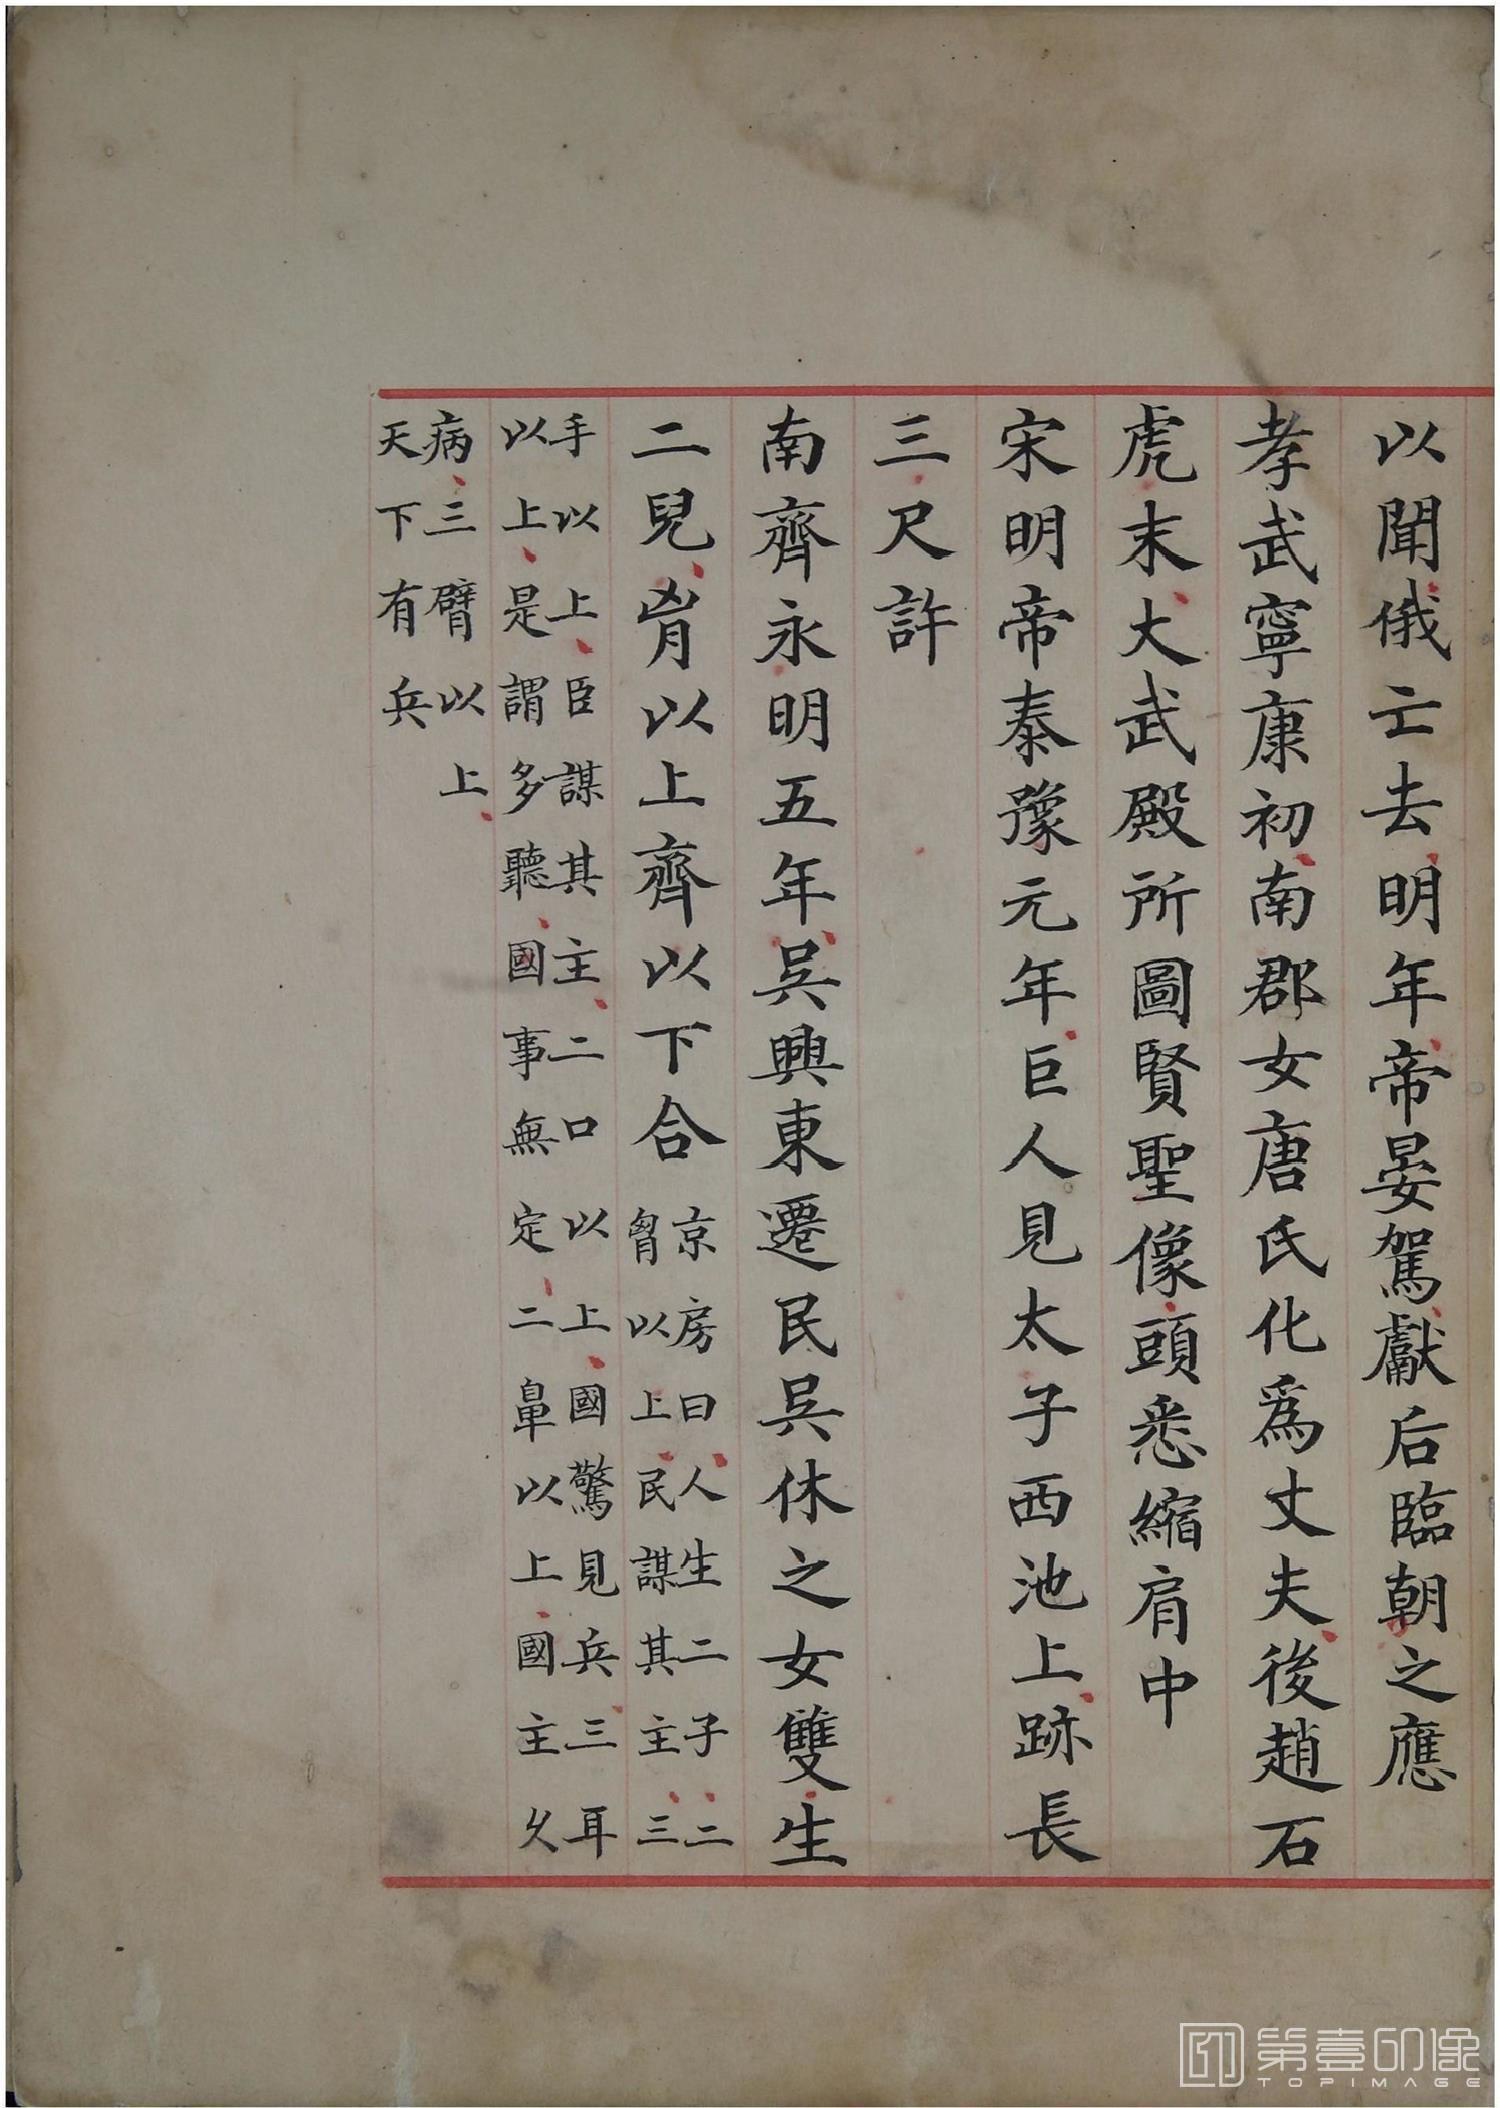 以聞俄亡去明年帝晏駕獻后臨朝之應
孝武寧康初南郡女唐氏化爲丈夫後趙石
虎末大武殿所圖賢聖像頭悉縮肩中
宋明帝泰豫元年巨人見太子西池上跡長
三尺許
南齊永明五年吳興東遷民吳休之女雙生
二兒胷以上齊以下合
京房曰人生二子二
胷以上民謀其主三
手以上臣謀其主二口以上國驚見兵三耳
以上是謂多聽國事無定二鼻以上國主久
病三臂以上
天下有兵
第壹印像
TOPIMAGE